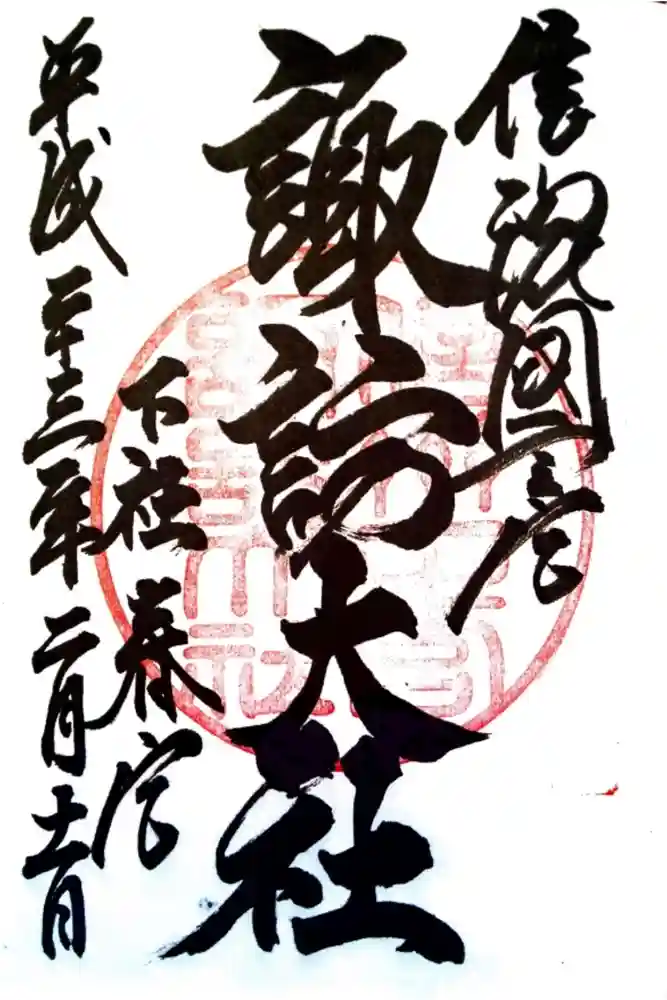 信濃國一之宮
諏訪大社
下社春宮
平成二十三年二月十一日